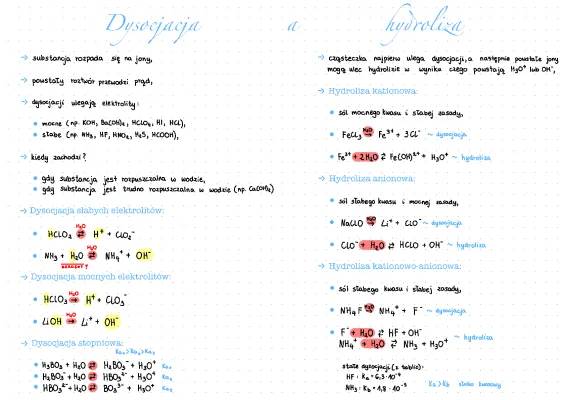 Dysocjacja a hydroliza
→ substancja rozpada się na jony,
→ powstały roztwór przewodzi prąd,
→ dysocjacji ulegają elektrolity:
• mocne (np. KOH, Ba(OH)₂, HClO₄, HI, HCl),
• słabe (np. NH₃, HF, HNO₂, H₂S, HCOOH),
→ kiedy zachodzi?
• gdy substancja jest rozpuszczalna w wodzie,
• gdy substancja jest trudno rozpuszczalna w wodzie (np. Ca(OH)₂)
→ Dysocjacja słabych elektrolitów:
H₂O
• HClO₂ ⇄ H⁺ + ClO₂⁻
H₂O
• NH₃ + H₂O ⇄ NH₄⁺ + OH⁻
→ Dysocjacja mocnych elektrolitów:
H₂O
• HClO₃ → H⁺ + ClO₃⁻
H₂O
• LiOH → Li⁺ + OH⁻
→ Dysocjacja stopniowa:
Ka₁>Ka₂>Ka₃
• H₃BO₃ + H₂O ⇄ H₂BO₃⁻ + H₃O⁺ Ka₁
• H₂BO₃⁻ + H₂O ⇄ HBO₃²⁻ + H₃O⁺ Ka₂
• HBO₃²⁻ + H₂O ⇄ BO₃³⁻ + H₃O⁺ Ka₃
→ cząsteczka najpierw ulega dysocjacji, a następnie powstałe jony
mogą ulec hydrolizie w wyniku czego powstają H₃O⁺ lub OH⁻,
→ Hydroliza kationowa:
• sól mocnego kwasu i słabej zasady,
H₂O
• FeCl₃ → Fe³⁺ + 3Cl⁻ ~ dysocjacja
• Fe³⁺ + 2H₂O ⇄ Fe(OH)²⁺ + H₃O⁺ ~ hydroliza
→ Hydroliza anionowa:
• sól słabego kwasu i mocnej zasady,
H₂O
• NaClO → Li⁺ + ClO⁻ ~ dysocjacja
• ClO⁻ + H₂O ⇄ HClO + OH⁻ ~ hydroliza
→ Hydroliza kationowo-anionowa:
• sól słabego kwasu i słabej zasady,
H₂O
• NH₄F → NH₄⁺ + F⁻ ~ dysocjacja
• F⁻ + H₂O ⇄ HF + OH⁻
NH₄⁺ + H₂O ⇄ NH₃ + H₃O⁺ ~ hydroliza
stałe dysocjacji (z tablic):
HF: Ka = 6,3·10⁻⁴
NH₃: Kb = 1,8·10⁻⁵ Ka > Kb słabo kwasowy